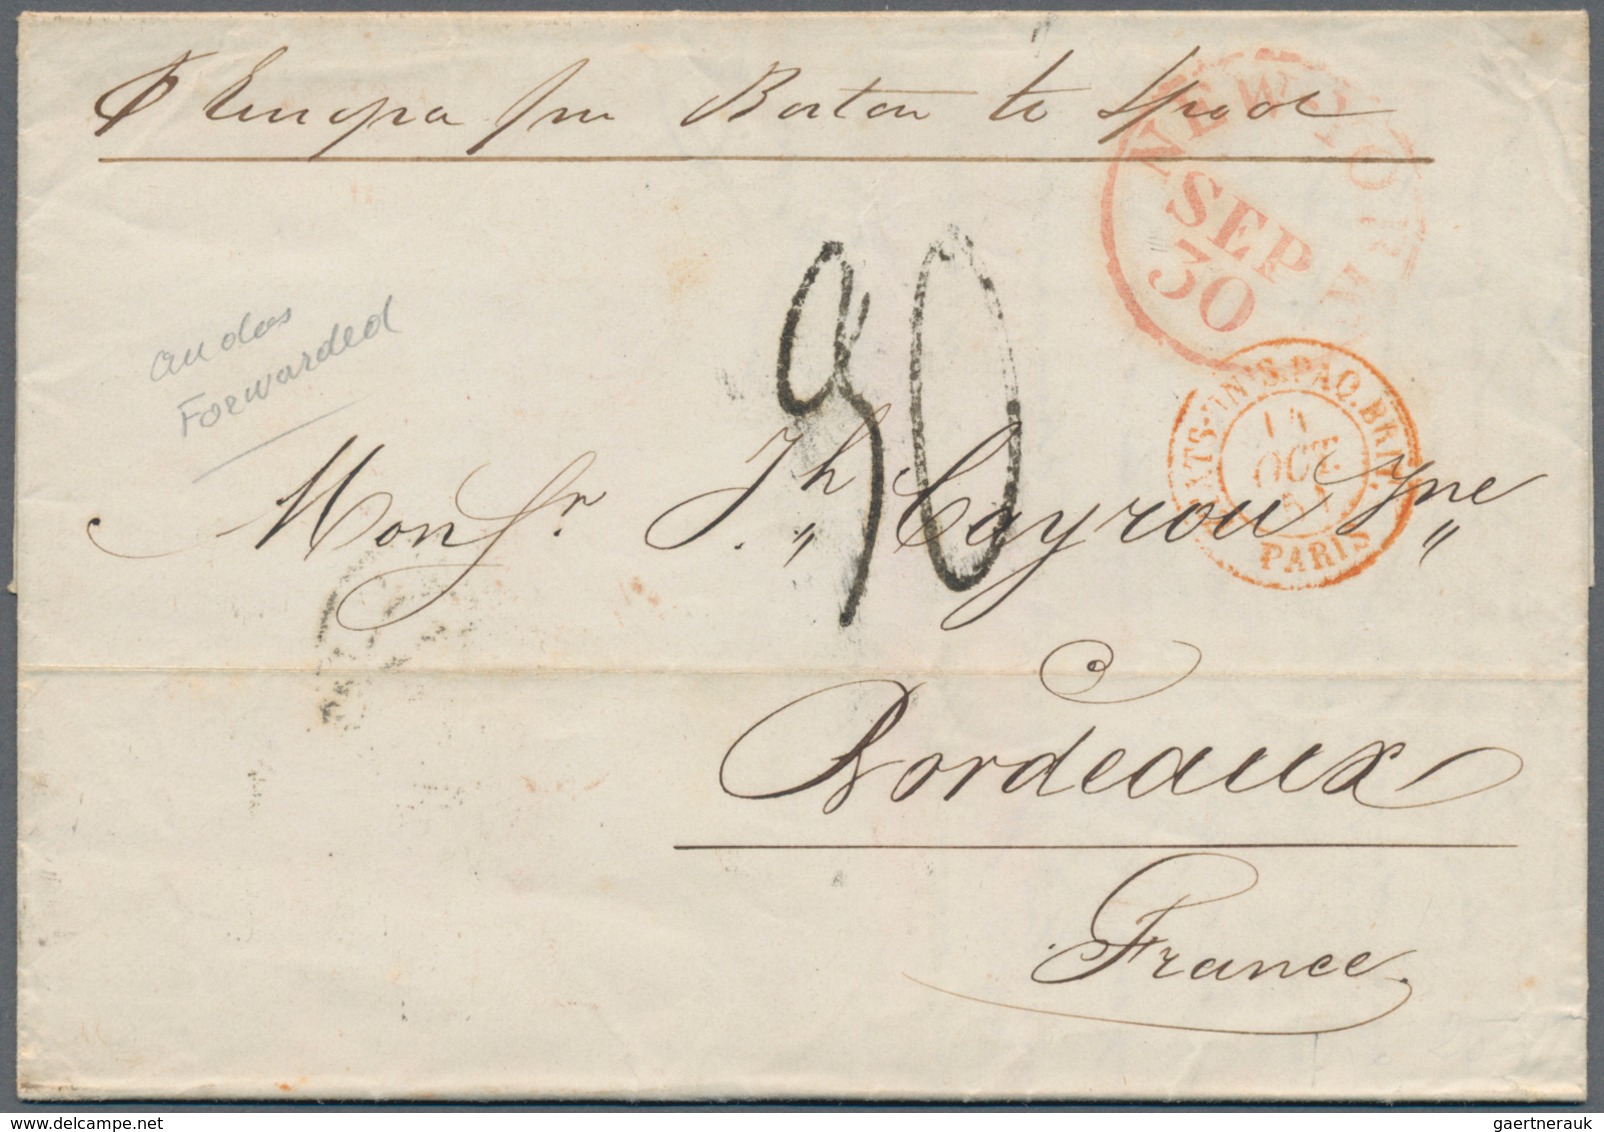 ⅌ Europa from Boston to Lpool
NEW-YORK
SEP
30
and as
Forwarded
30
ETATS-UNIS. PAQ. BRIT.
14
OCT.
PARIS
Monsr. Jh Cayrou Jne
Bordeaux
France
gaertnerauk